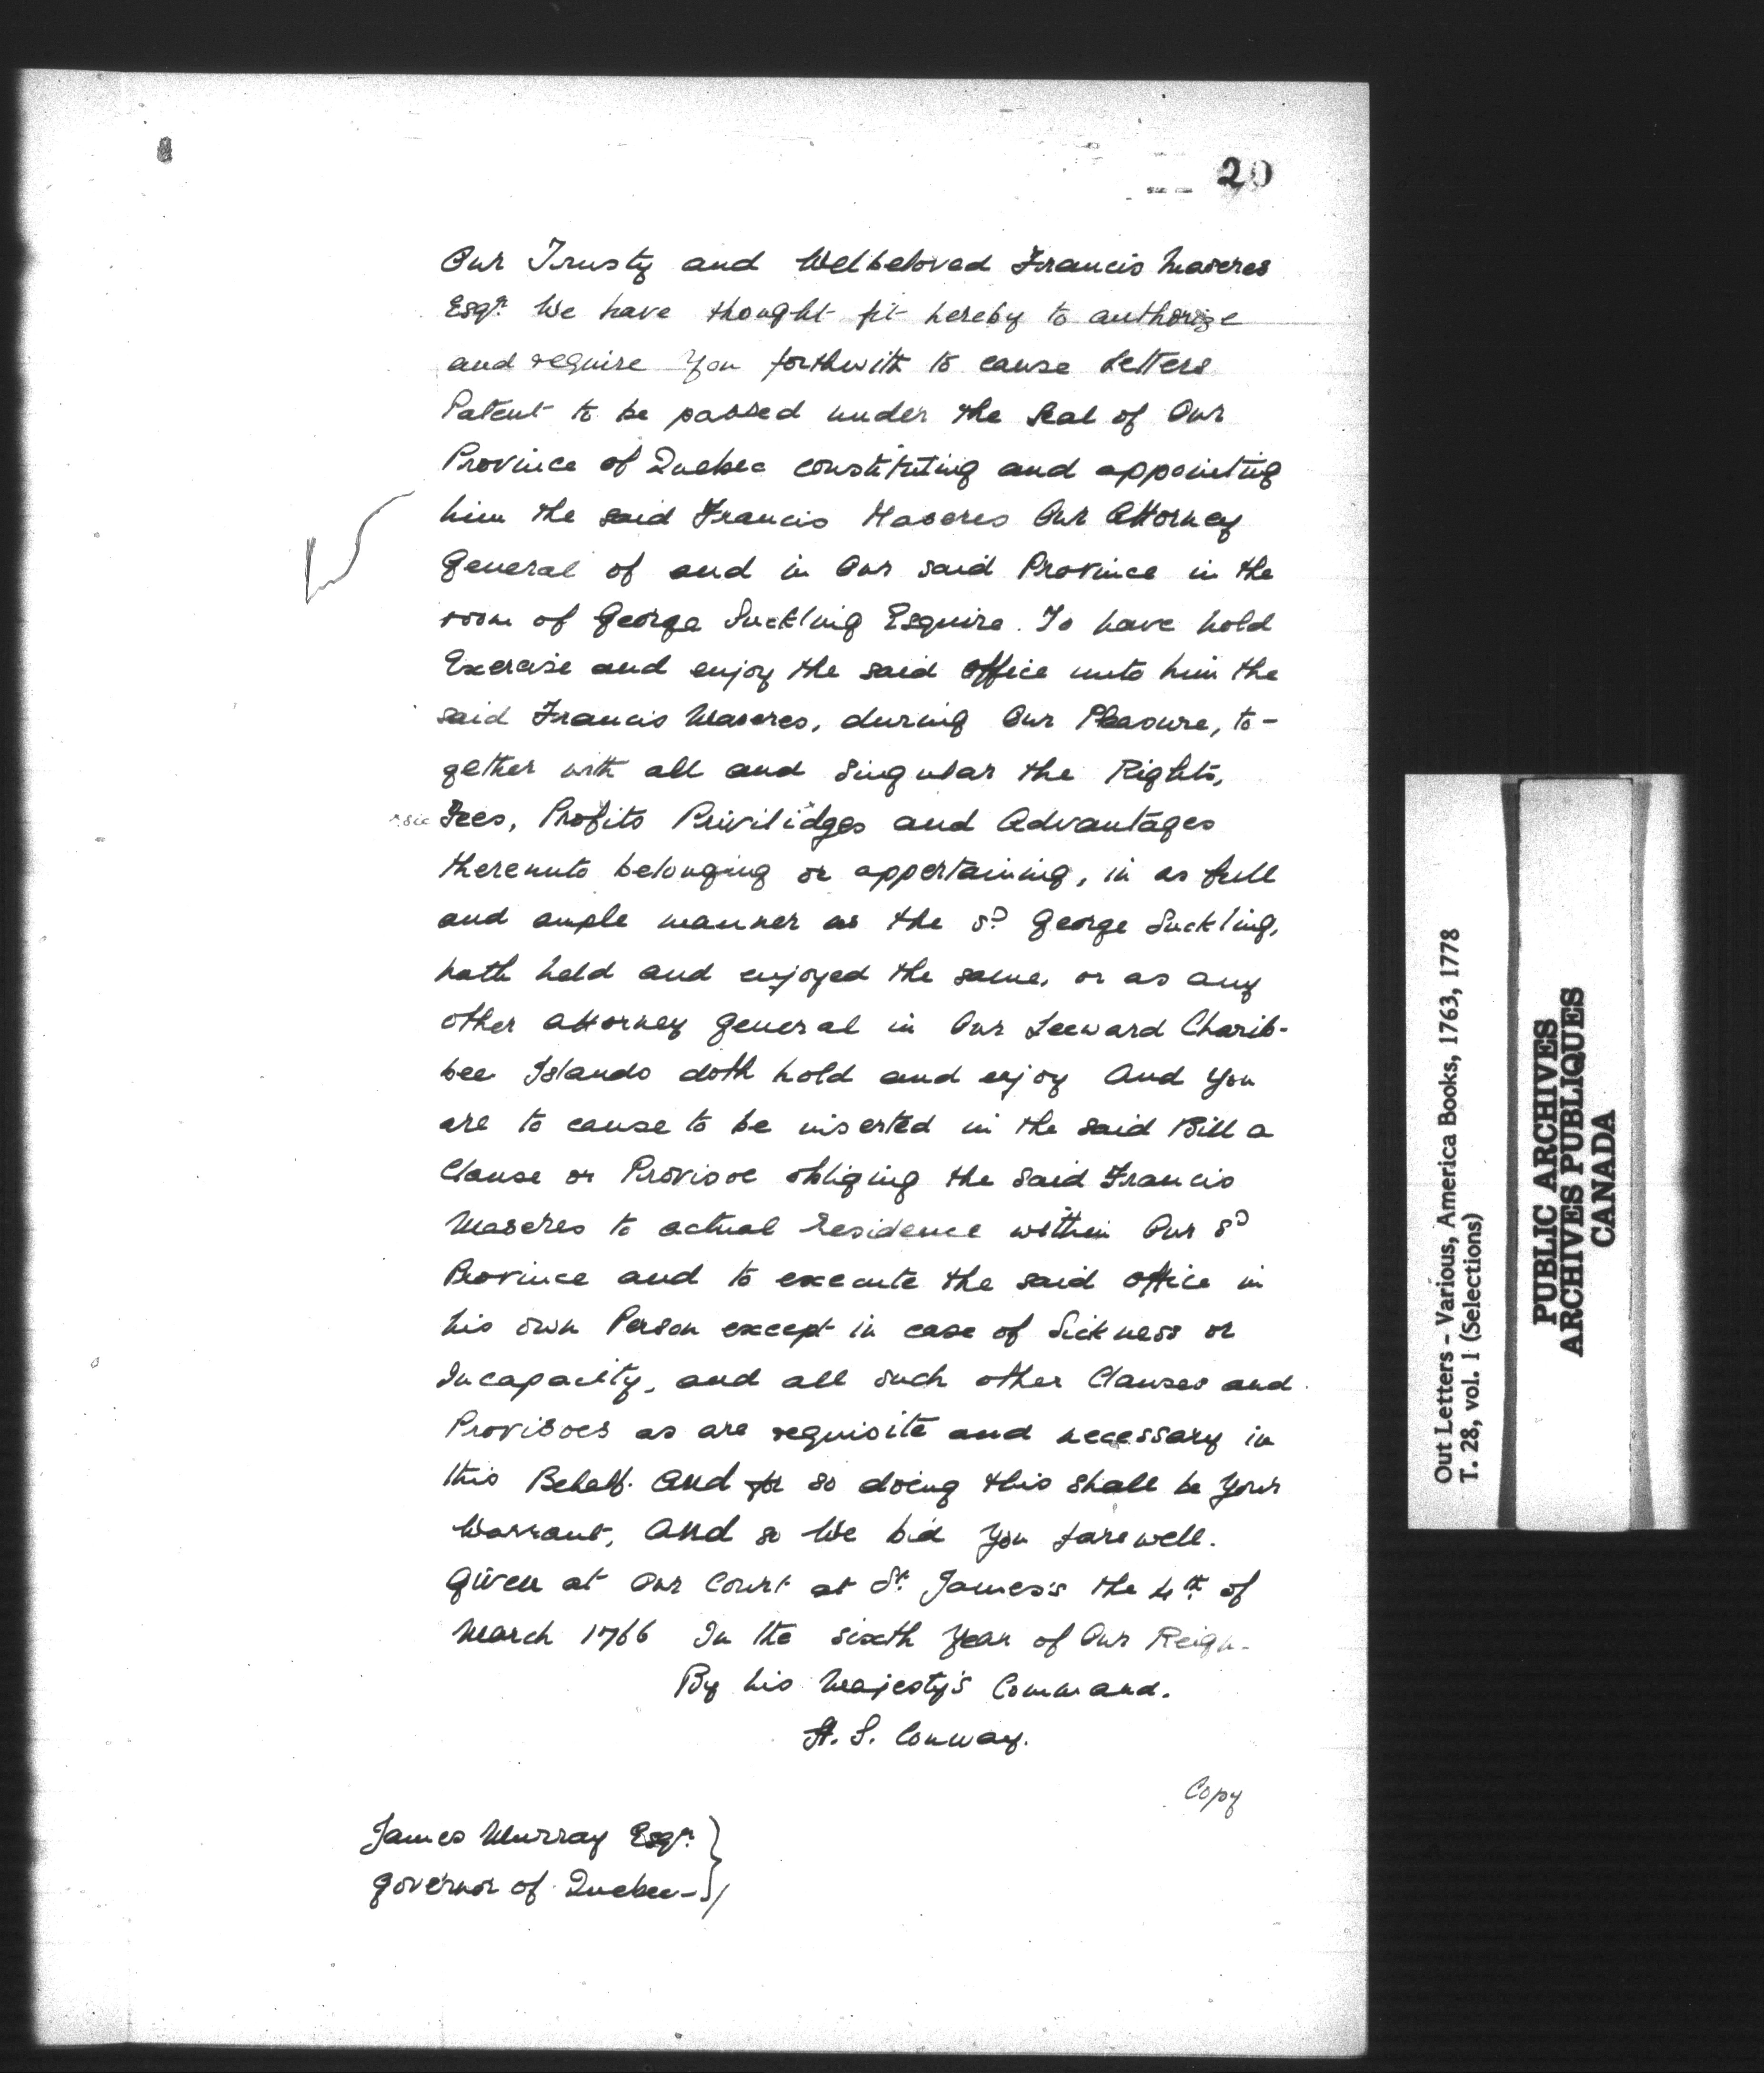 20
Our Trusty and Welbeloved Francis Maseres
Esqr. We have thought fit hereby to authorize
and require You forthwith to cause Letters
Patent to be passed under the Seal of Our
Province of Quebec constituting and appointing
him the said Francis Maseres Our Attorney
General of and in Our said Province in the
room of George Suckling Esquire. To have hold
Exercise and enjoy the said Office unto him the
said Francis Maseres, during Our Pleasure, to-
gether with all and Singular the Rights,
sic Fees, Profits Privilidges and Advantages
thereunto belonging or appertaining, in as full
and ample manner as the sd. George Suckling,
hath held and enjoyed the same, or as any
other Attorney General in Our Leeward Charib-
bee Islands doth hold and enjoy And You
are to cause to be inserted in the said Bill a
Clause or Provisoe obliging the said Francis
Maseres to actual Residence within Our sd
Province and to execute the said Office in
his own Person except in case of Sickness or
Incapacity, and all such other Clauses and
Provisoes as are requisite and necessary in
this Behalf. And for so doing this shall be Your
Warrant, And so We bid You farewell.
Given at Our Court at St. James's the 4th. of
March 1766 In the sixth Year of Our Reign.
By his Majesty's Command.
H. S. Conway.
Copy
James Murray Esqr.
Governor of Quebec
Out Letters - Various, America Books, 1763, 1778
T. 28, vol. 1 (Selections)
PUBLIC ARCHIVES
ARCHIVES PUBLIQUES
CANADA